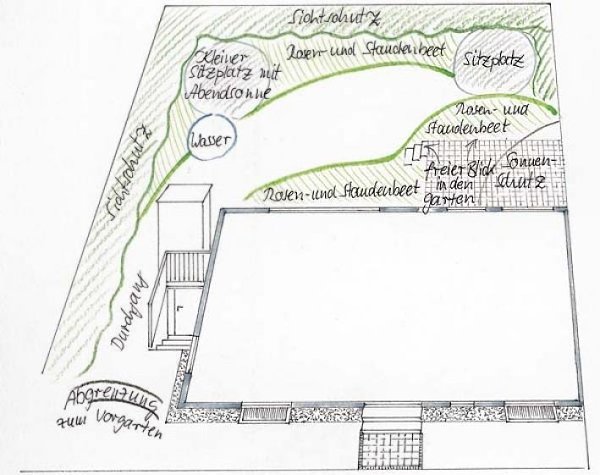 Sichtschutz
Rosen- und Staudenbeet
Kleiner
Sitzplatz mit
Abendsonne
Sitzplatz
Wasser
Rosen- und
Staudenbeet
Sichtschutz
Rosen- und Staudenbeet
freier Blick
in den
Garten
Sonnen-
schutz
Durchgang
Abgrenzung
zum Vorgarten